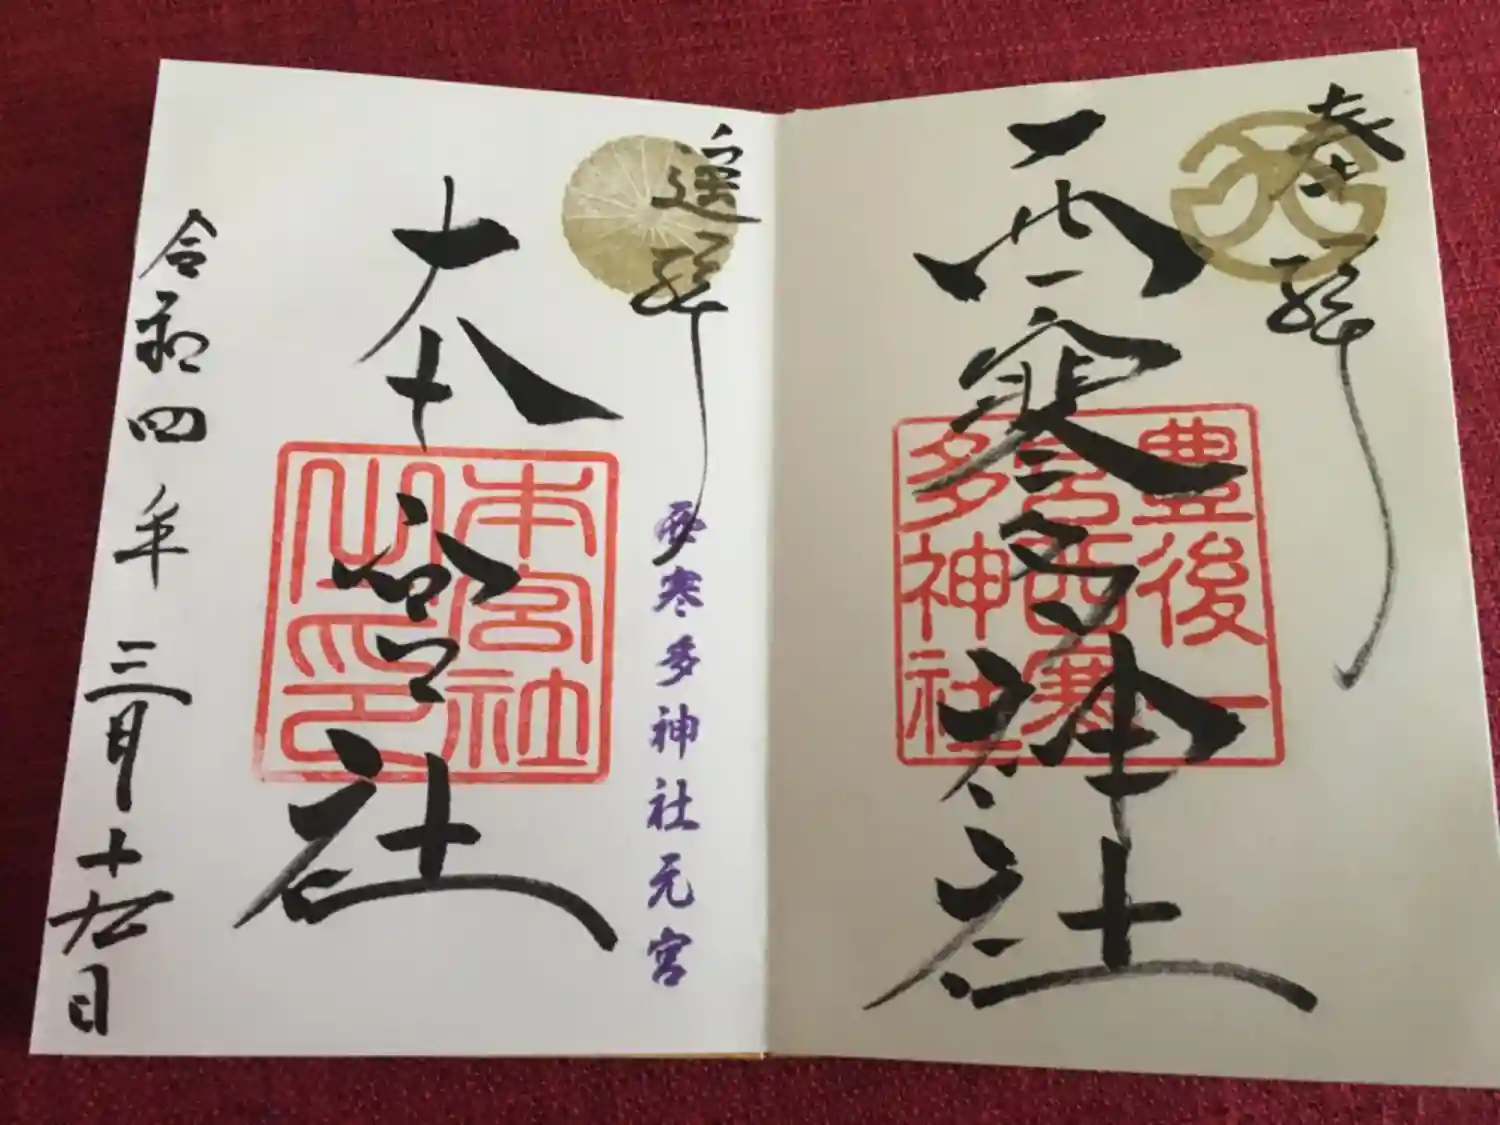 奉拝
西寒多神社
豊後一
宮西寒
多神社
遥拝
西寒多神社元宮
本宮社
本宮社
之印
令和四年三月十日